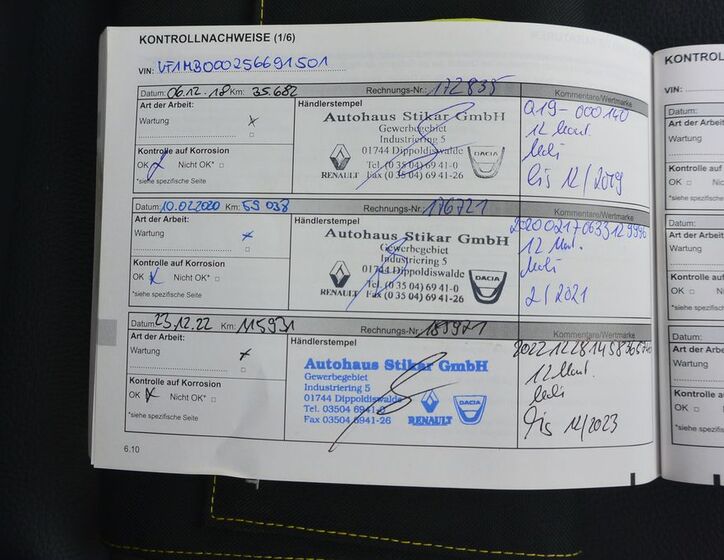 KONTROLLNACHWEISE (1/6)
VIN: VF1MB000256691501
Datum: 06.12.18 Km: 35.682 Rechnungs-Nr.: 172835 Kommentare/Wertmarke
Art der Arbeit:
Wartung x
Kontrolle auf Korrosion
OK Nicht OK* □
*siehe spezifische Seite
Händlerstempel
Autohaus Stikar GmbH
Gewerbegebiet
Industriering 5
01744 Dippoldiswalde
Tel. (0 35 04) 69 41-0
Fax (0 35 04) 69 41-26
RENAULT DACIA
Q19-000140
12 Mont.
bis 12/2019
Datum: 10.02.2020 Km: 59 038 Rechnungs-Nr.: 176721 Kommentare/Wertmarke
Art der Arbeit:
Wartung x
Kontrolle auf Korrosion
OK x Nicht OK* □
*siehe spezifische Seite
Händlerstempel
Autohaus Stikar GmbH
Gewerbegebiet
Industriering 5
01744 Dippoldiswalde
Tel. (0 35 04) 69 41-0
Fax (0 35 04) 69 41-26
RENAULT DACIA
12 Mont.
2/2021
Datum: 23.12.22 Km: 115931 Rechnungs-Nr.: 183971 Kommentare/Wertmarke
Art der Arbeit:
Wartung x
Kontrolle auf Korrosion
OK x Nicht OK* □
*siehe spezifische Seite
Händlerstempel
Autohaus Stikar GmbH
Gewerbegebiet
Industriering 5
01744 Dippoldiswalde
Tel. 03504 6941-0
Fax 03504 6941-26
RENAULT DACIA
12 Mont.
Bis 12/2023
6.10
KONTROL
VIN:
Datum:
Art der Arbeit:
Wartung
Kontrolle auf
OK □ Nicht
*siehe spezifische
Datum:
Art der Arbeit
Wartung
Kontrolle auf
OK □ Nich
*siehe spezifisch
Datum:
Art der Arbei
Wartung
Kontrolle au
OK □ Nic
*siehe spezifisc